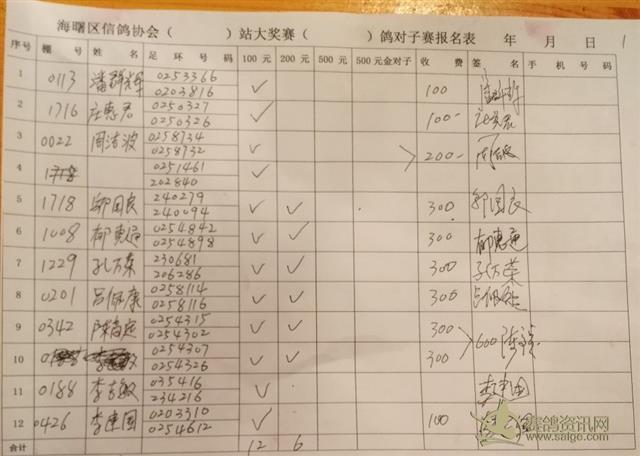 海曙区信鸽协会（　　）站大奖赛（　　）鸽对子赛报名表　年　月　日 1
序号 棚号 姓名 足环号码 100元 200元 500元 500元金对子 收费 签名 手机号码
1 0113 潘群辉 0253366 ✓ 100
0203816
2 1716 庄惠君 0250327 ✓ 100-
0250326
3 0022 周洁波 0258734 ✓ 200-
0258732
4 0251461 ✓
202840
5 1718 邬国良 240279 ✓ ✓ 300 邬国良
240094
6 1008 郁惠通 0254842 ✓ ✓ 300 郁惠通
0254898
7 1229 孔万荣 230681 ✓ ✓ 300 孔万荣
206286
8 0201 吕佩康 0258114 ✓ ✓ 300
0258116
9 0342 0254315 ✓ ✓ 300 600
0254302
10 0254307 ✓ ✓ 300
0254326
11 0188 李吉敏 035416 ✓
234216
12 0426 李建国 0203310 ✓ 100
0254612
合计 12 6
赛鸽资讯网
www.saige.com